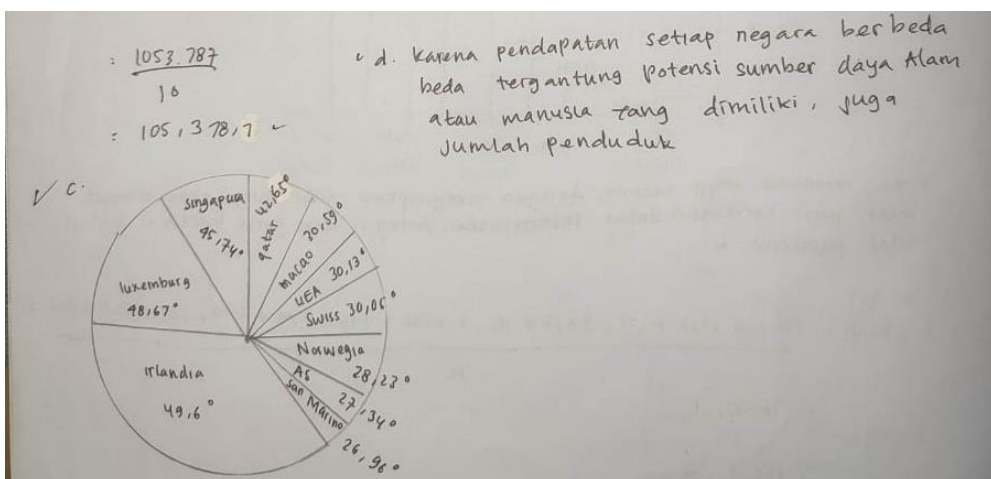 : 1053.787
10
= 105,378,7
d. Karena pendapatan setiap negara berbeda
beda tergantung potensi sumber daya Alam
atau manusia yang dimiliki, juga
Jumlah penduduk
c.
singapura
45,74°
qatar 42,65°
macao 30,59°
UEA 30,13°
Swiss 30,06°
Norwegia
28,23°
AS
27,34°
San Marino
26,96°
luxemburg
48,67°
irlandia
49,6°